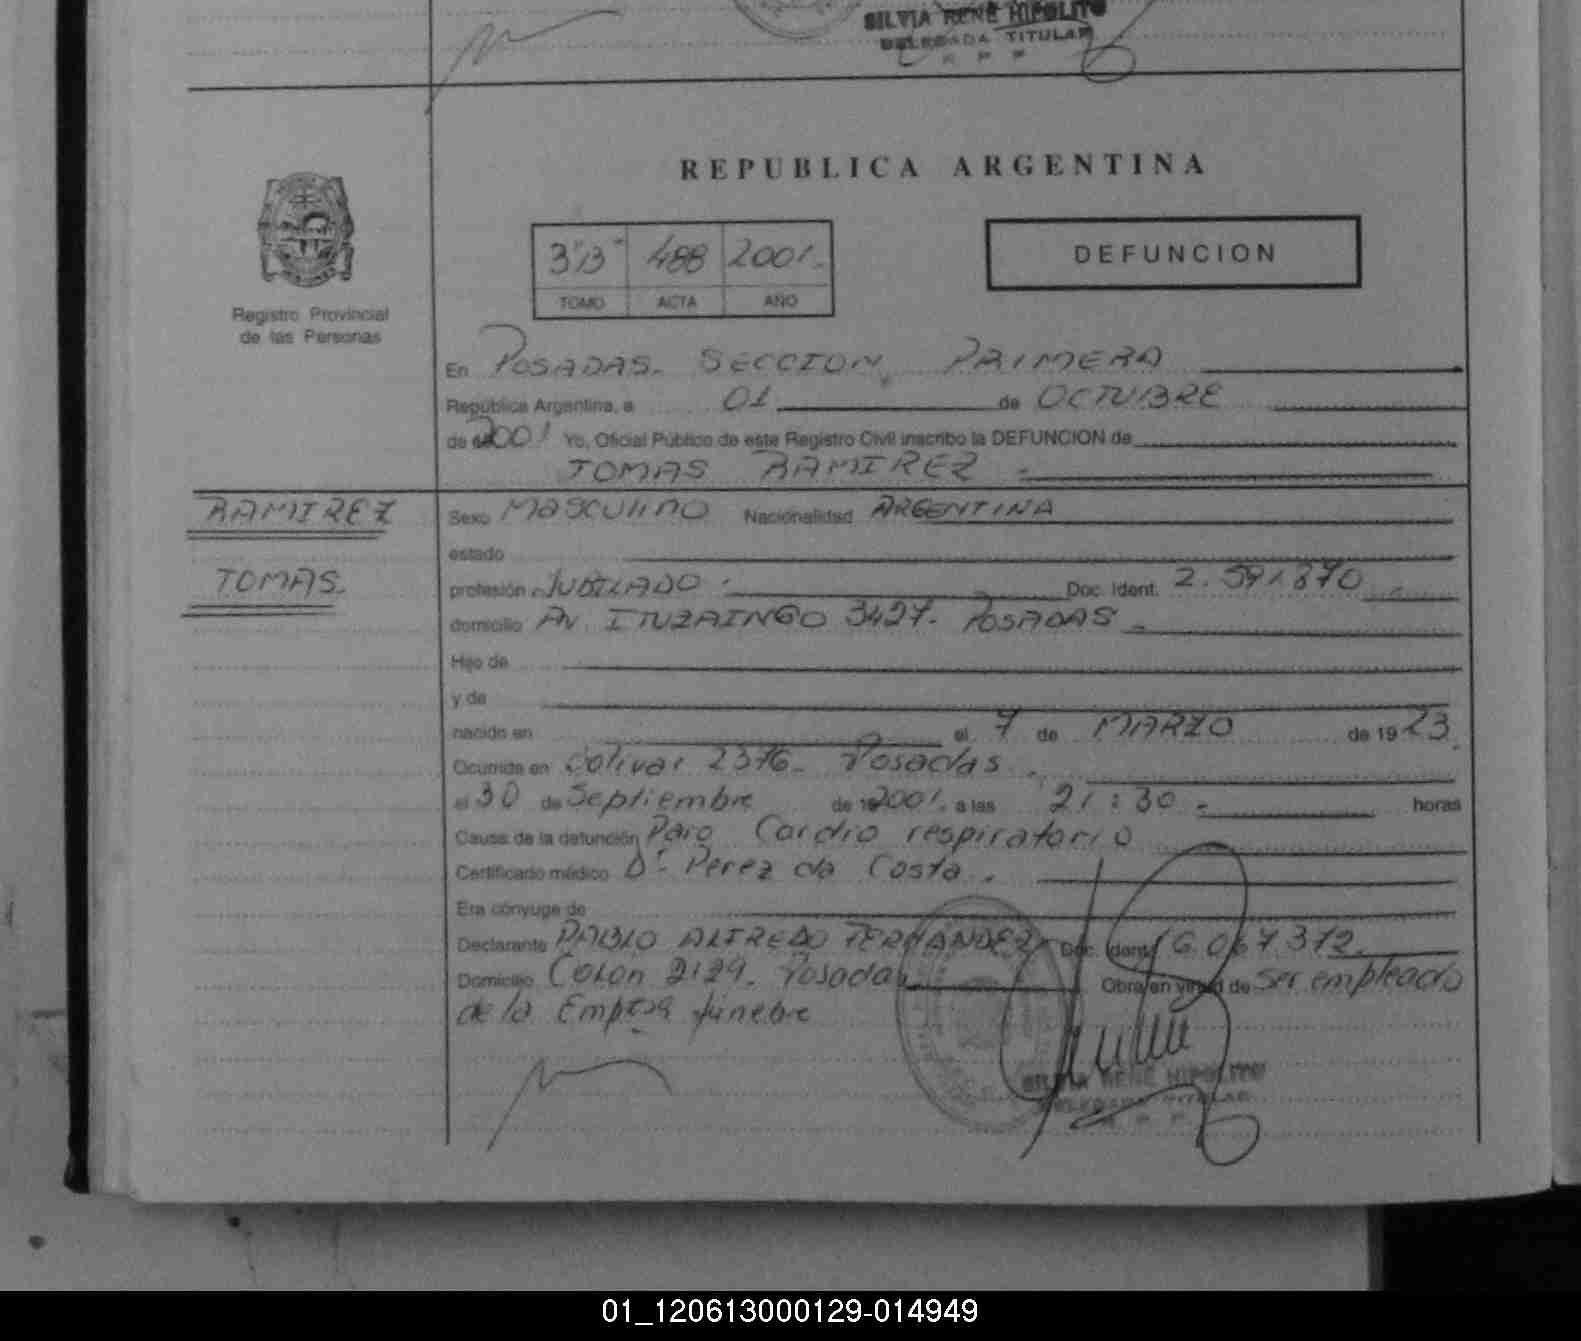 SILVIA RENE HIPOLITO
DELEGADA TITULAR
R P P
REPUBLICA ARGENTINA
3"B" 488 2001.
TOMO ACTA AÑO
DEFUNCION
Registro Provincial
de las Personas
En POSADAS. SECCION PRIMERA
República Argentina, a 01 de OCTUBRE
de 2001 Yo, Oficial Público de este Registro Civil inscribo la DEFUNCION de
TOMAS RAMIREZ
RAMIREZ
TOMAS.
Sexo MASCULINO Nacionalidad ARGENTINA
estado
profesión JUBILADO Doc. Ident. 2.591.370
domicilio AV. ITUZAINGO 3427. POSADAS
Hijo de
y de
nacido en el 7 de MARZO de 1923
Ocurrida en Bolivar 2376. Posadas
el 30 de Septiembre de 2001. a las 21:30 horas
Causa de la defunción Paro Cardio respiratorio
Certificado médico Dr. Perez da Costa.
Era cónyuge de
Declarante PABLO ALFREDO FERNANDEZ Doc. Ident. 16.067.372.
Domicilio COLON 2129. Posadas Obra en virtud de Ser empleado
de la Empresa fúnebre
SILVIA RENE HIPOLITO
DELEGADA TITULAR
R P P
01_120613000129-014949